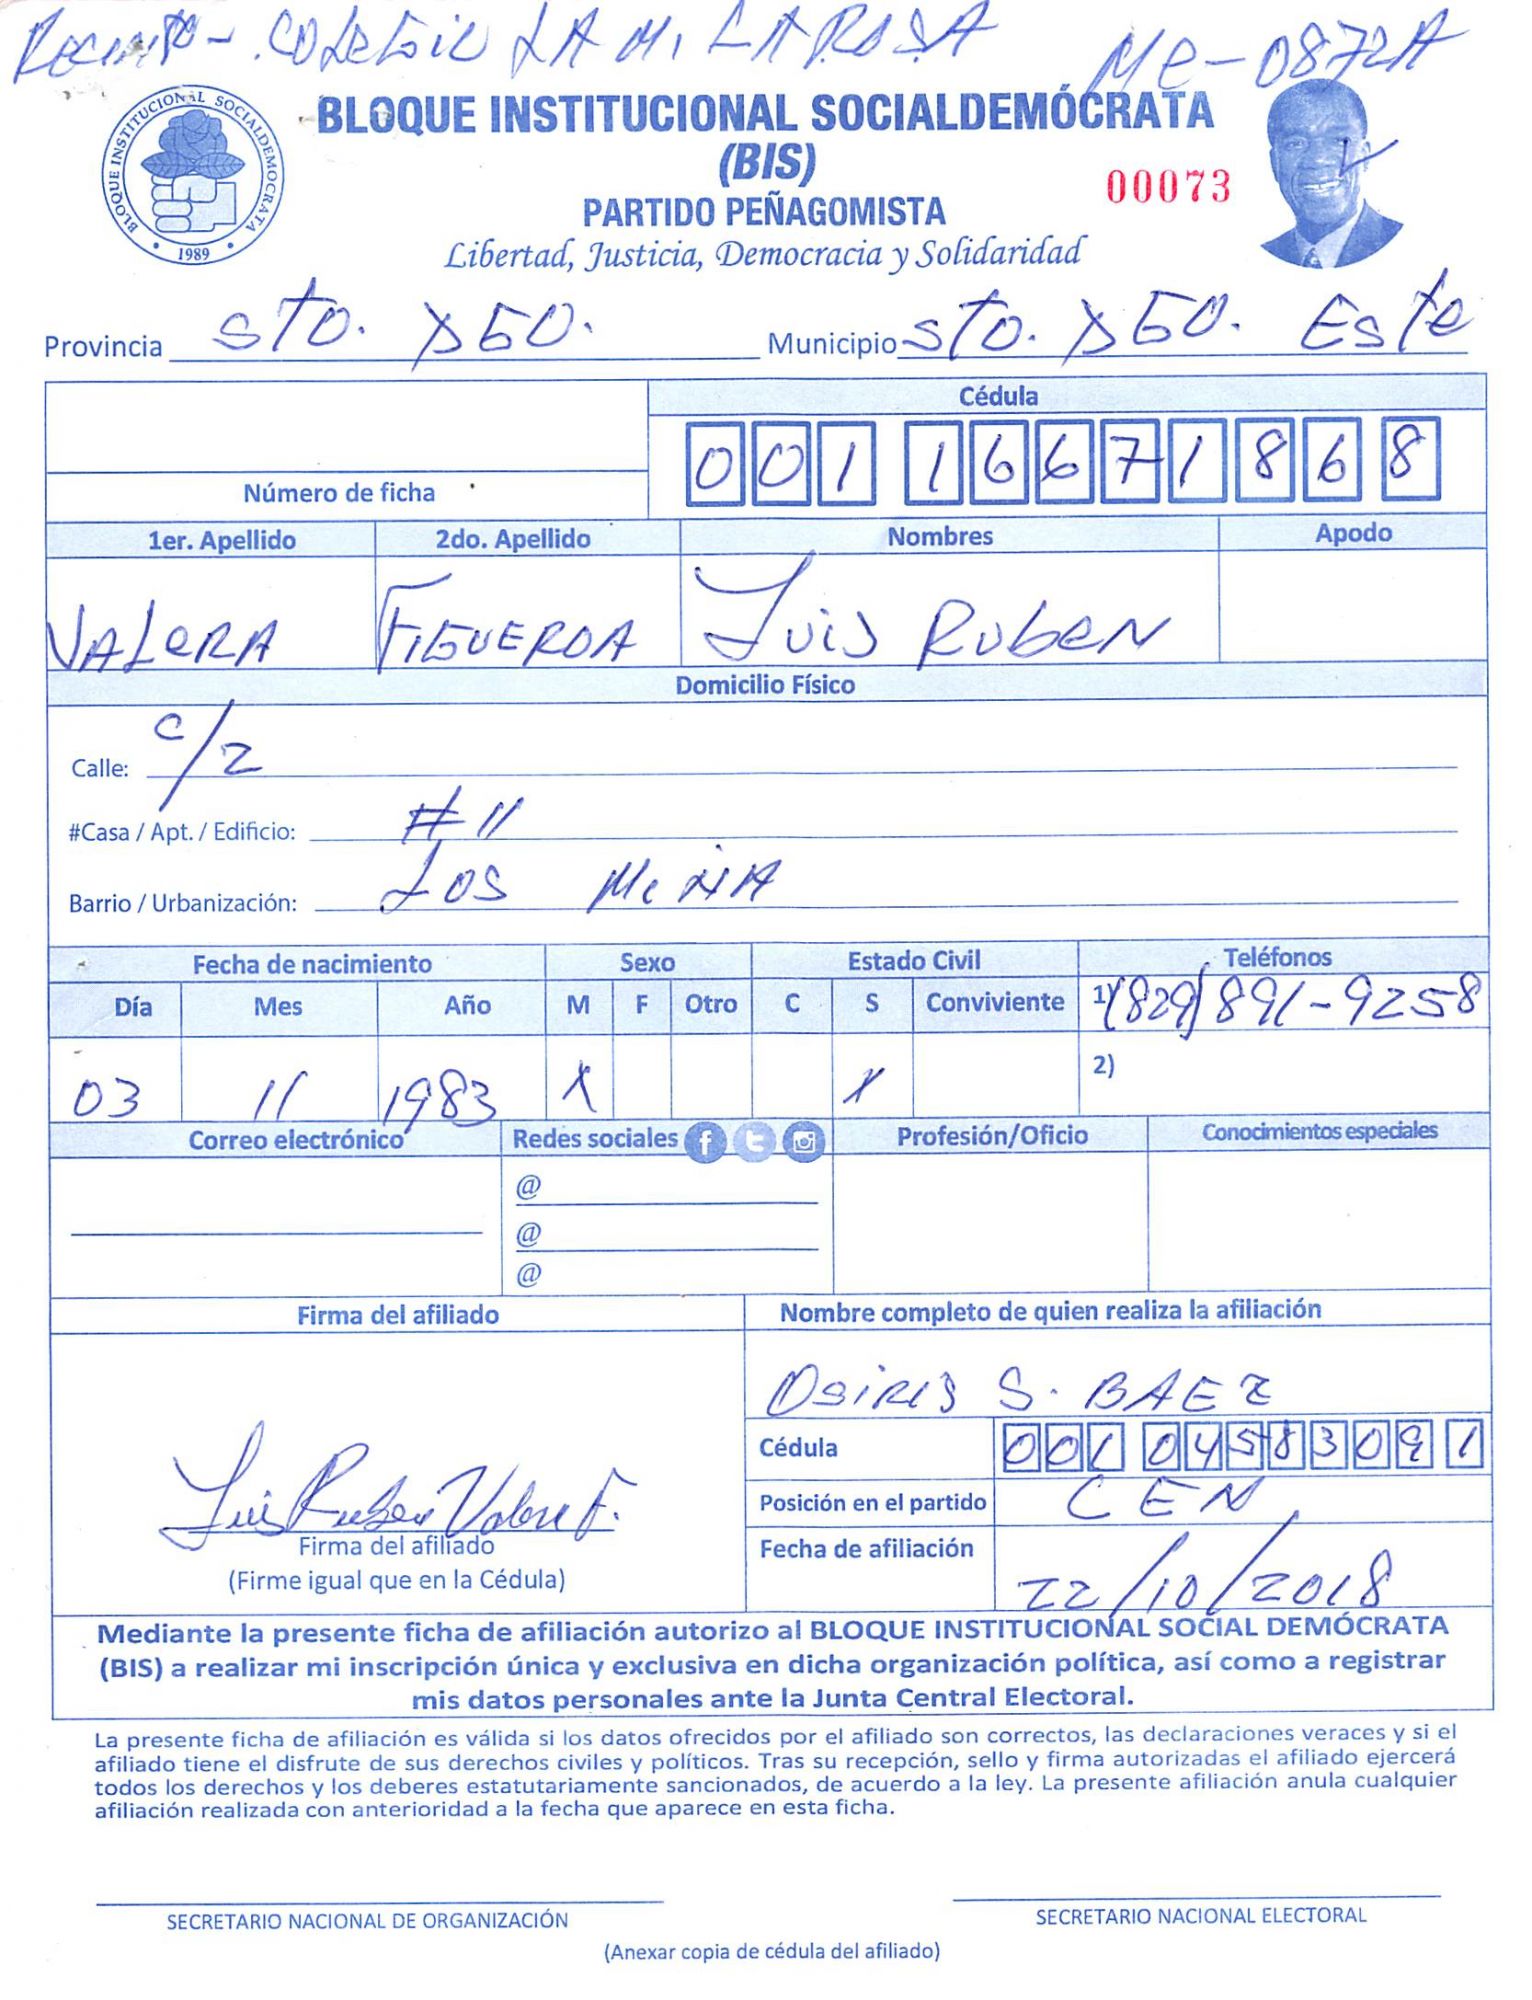 Recinto - COLEGIO LA MI LAROSA Me-0872A
BLOQUE INSTITUCIONAL SOCIALDEMÓCRATA
(BIS)
BLOQUE INSTITUCIONAL SOCIALDEMOCRATA
1989
00073
PARTIDO PEÑAGOMISTA
Libertad, Justicia, Democracia y Solidaridad
Provincia Sto. DGO. Municipio Sto. DGO. Este
Cédula
001 1667186 8
Número de ficha
1er. Apellido 2do. Apellido Nombres Apodo
VALERA FIGUEROA Luis RubeN
Domicilio Físico
Calle: C/2
#Casa / Apt. / Edificio: # 11
Barrio / Urbanización: LOS MiNA
Fecha de nacimiento Sexo Estado Civil Teléfonos
Día Mes Año M F Otro C S Conviviente 1) (829) 891-9258
03 11 1983 X X 2)
Correo electrónico Redes sociales Profesión/Oficio Conocimientos especiales
@
@
@
Firma del afiliado Nombre completo de quien realiza la afiliación
OSIRIS S. BAEZ
Cédula 001 0458309 1
Luis Ruben Valera F.
Posición en el partido CEN
Firma del afiliado
(Firme igual que en la Cédula)
Fecha de afiliación 22/10/2018
Mediante la presente ficha de afiliación autorizo al BLOQUE INSTITUCIONAL SOCIAL DEMÓCRATA
(BIS) a realizar mi inscripción única y exclusiva en dicha organización política, así como a registrar
mis datos personales ante la Junta Central Electoral.
La presente ficha de afiliación es válida si los datos ofrecidos por el afiliado son correctos, las declaraciones veraces y si el
afiliado tiene el disfrute de sus derechos civiles y políticos. Tras su recepción, sello y firma autorizadas el afiliado ejercerá
todos los derechos y los deberes estatutariamente sancionados, de acuerdo a la ley. La presente afiliación anula cualquier
afiliación realizada con anterioridad a la fecha que aparece en esta ficha.
SECRETARIO NACIONAL DE ORGANIZACIÓN SECRETARIO NACIONAL ELECTORAL
(Anexar copia de cédula del afiliado)